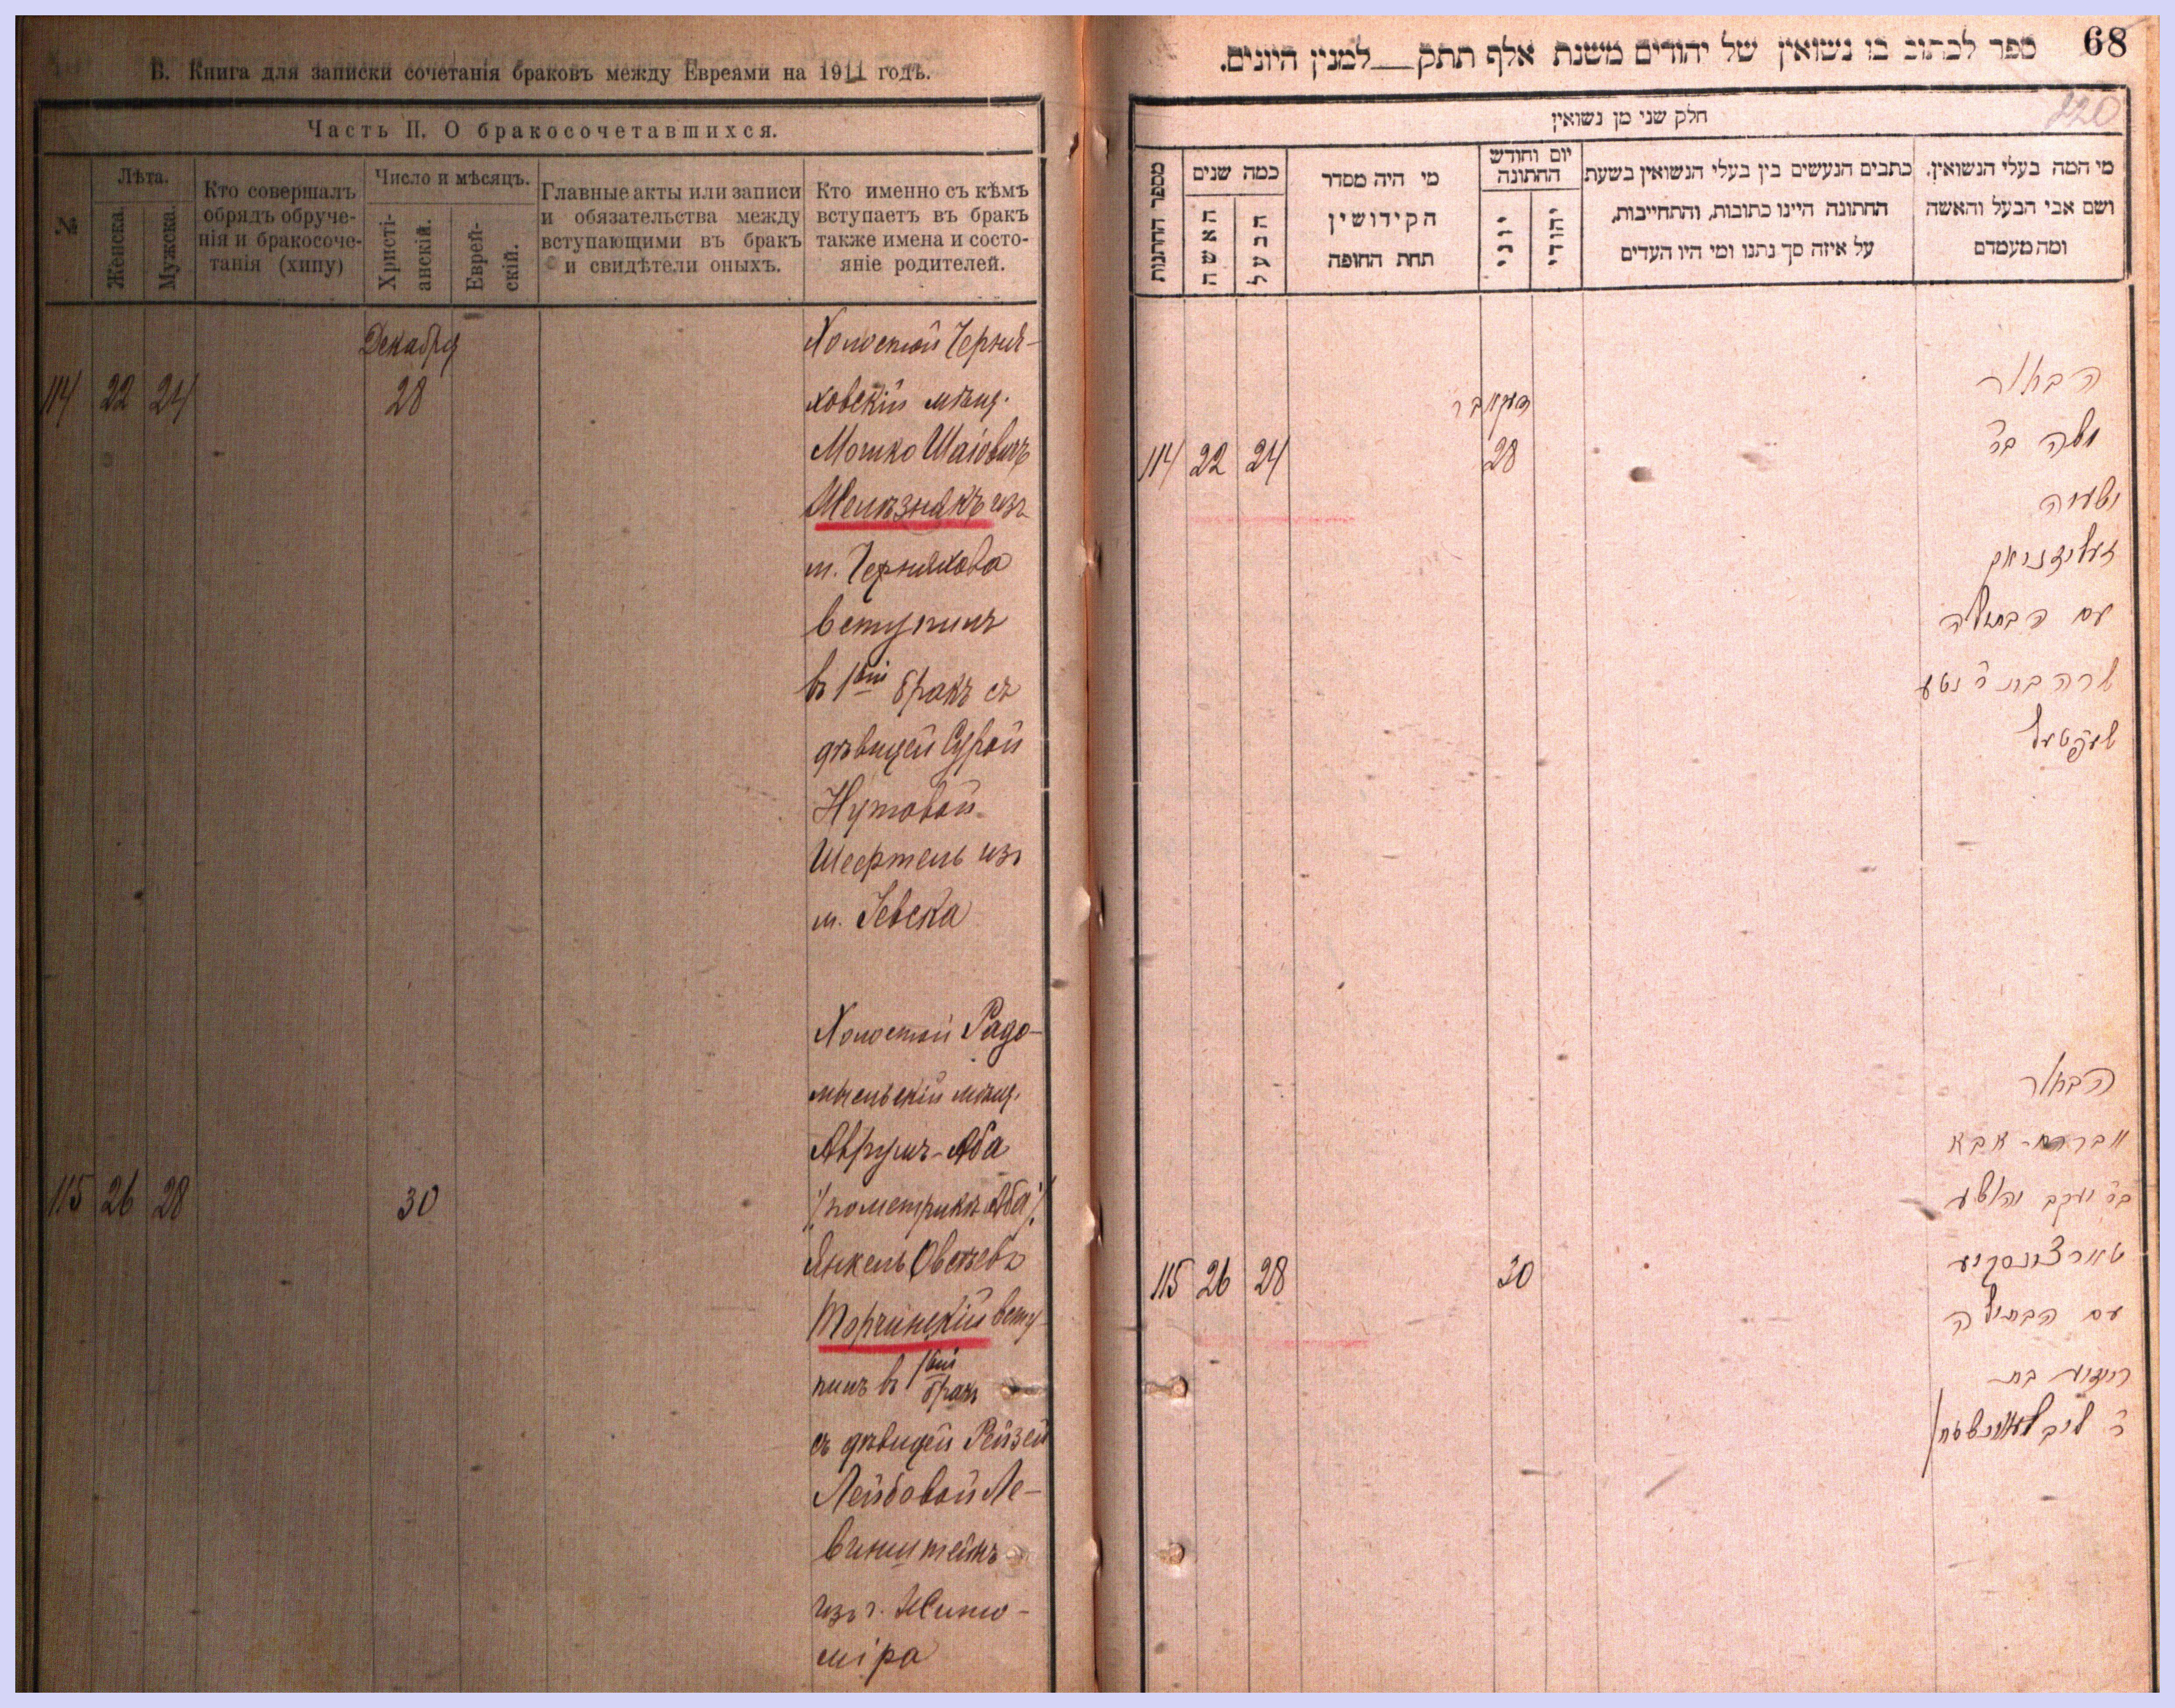 В. Книга для записки сочетанія браковъ между Евреями на 1911 годъ.
Часть II. О бракосочетавшихся.
№
Лѣта.
Женска.
Мужска.
Кто совершалъ
обрядъ обруче-
нія и бракосоче-
танія (хипу)
Число и мѣсяцъ.
Христі-
анскій.
Еврей-
скій.
Главные акты или записи
и обязательства между
вступающими въ бракъ
и свидѣтели оныхъ.
Кто именно съ кѣмъ
вступаетъ въ бракъ
также имена и состо-
яніе родителей.
Декабря
114 22 24 28
Холостой Черня-
ховскій мѣщ.
Мошко Шаіовичъ
Желѣзнякъ изъ
м. Черняхова
вступилъ
въ 1ый бракъ съ
дѣвицей Сурой
Нутовой
Шефтель изъ
м. Іевска
115 26 28 30
Холостой Радо-
мысльскій мѣщ.
Аврумъ-Аба
/по метрикѣ Аба/
Янкель Овсѣевъ
Торчинскій всту-
пилъ въ 1ый бракъ
съ дѣвицей Рейзей
Лейбовой Ле-
винштейнъ
изъ г. Жито-
міра
68
ספר לכתוב בו נשואין של יהודים משנת אלף תתק__למנין היונים.
220
חלק שני מן נשואין
מספר החתונות
כמה שנים
האשה
הבעל
מי היה מסדר
הקידושין
תחת החופה
יום וחודש
החתונה
יוני
יהודי
כתבים הנעשים בין בעלי הנשואין בשעת
החתונה היינו כתובות, והתחייבות,
על איזה סך נתנו ומי היו העדים
מי המה בעלי הנשואין.
ושם אבי הבעל והאשה
ומה מעמדם
דעקאבר
114 22 24 28
הבחור
משה בר
ישעיה
זעליזניאק
עם הבתולה
שרה בת ר נטע
שעפטעל
115 26 28 30
הבחור
אברהם-אבא
בר יעקב יהושע
טארצינסקיע
עם הבתולה
רייזע בת
ר ליב